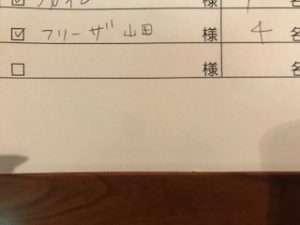 ☑ 様 名
☑ フリーザ 山田 様 4 名
☐ 様 名